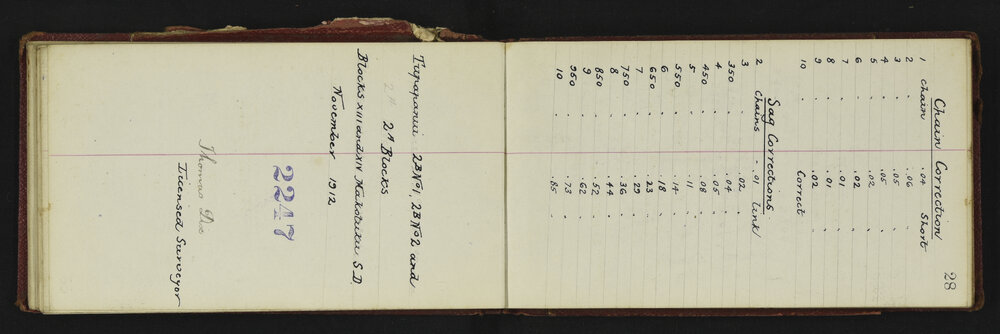 28
Chain Correction
1 chain . .04 short
2 . .06 .
3 . .05 .
4 . .05 .
5 . .02 .
6 . .02 .
7 . .01 .
8 . .01 .
9 . .02 .
10 correct
Sag Corrections
2 chains . .01 link
3 . .02 .
350 . .04
4 . .05
450 . .08
5 . .11
550 . .14
6 . .18
650 . .23
7 . .29
750 . .36
8 . .44
850 . .52
9 . .62
950 . .73
10 . .85
2BNo1, 2BNo2 and
2A Blocks
Blocks XIII and XIV Makotuku S.D.
November 1912
2247
Thomas
Licensed Surveyor